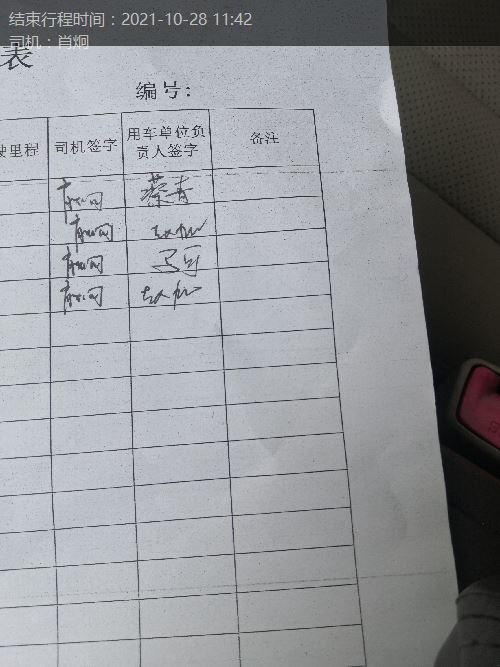 结束行程时间：2021-10-28 11:42
司机：肖炯
表
编号:
驶里程 司机签字 用车单位负责人签字 备注
肖炯
肖炯
肖炯
肖炯